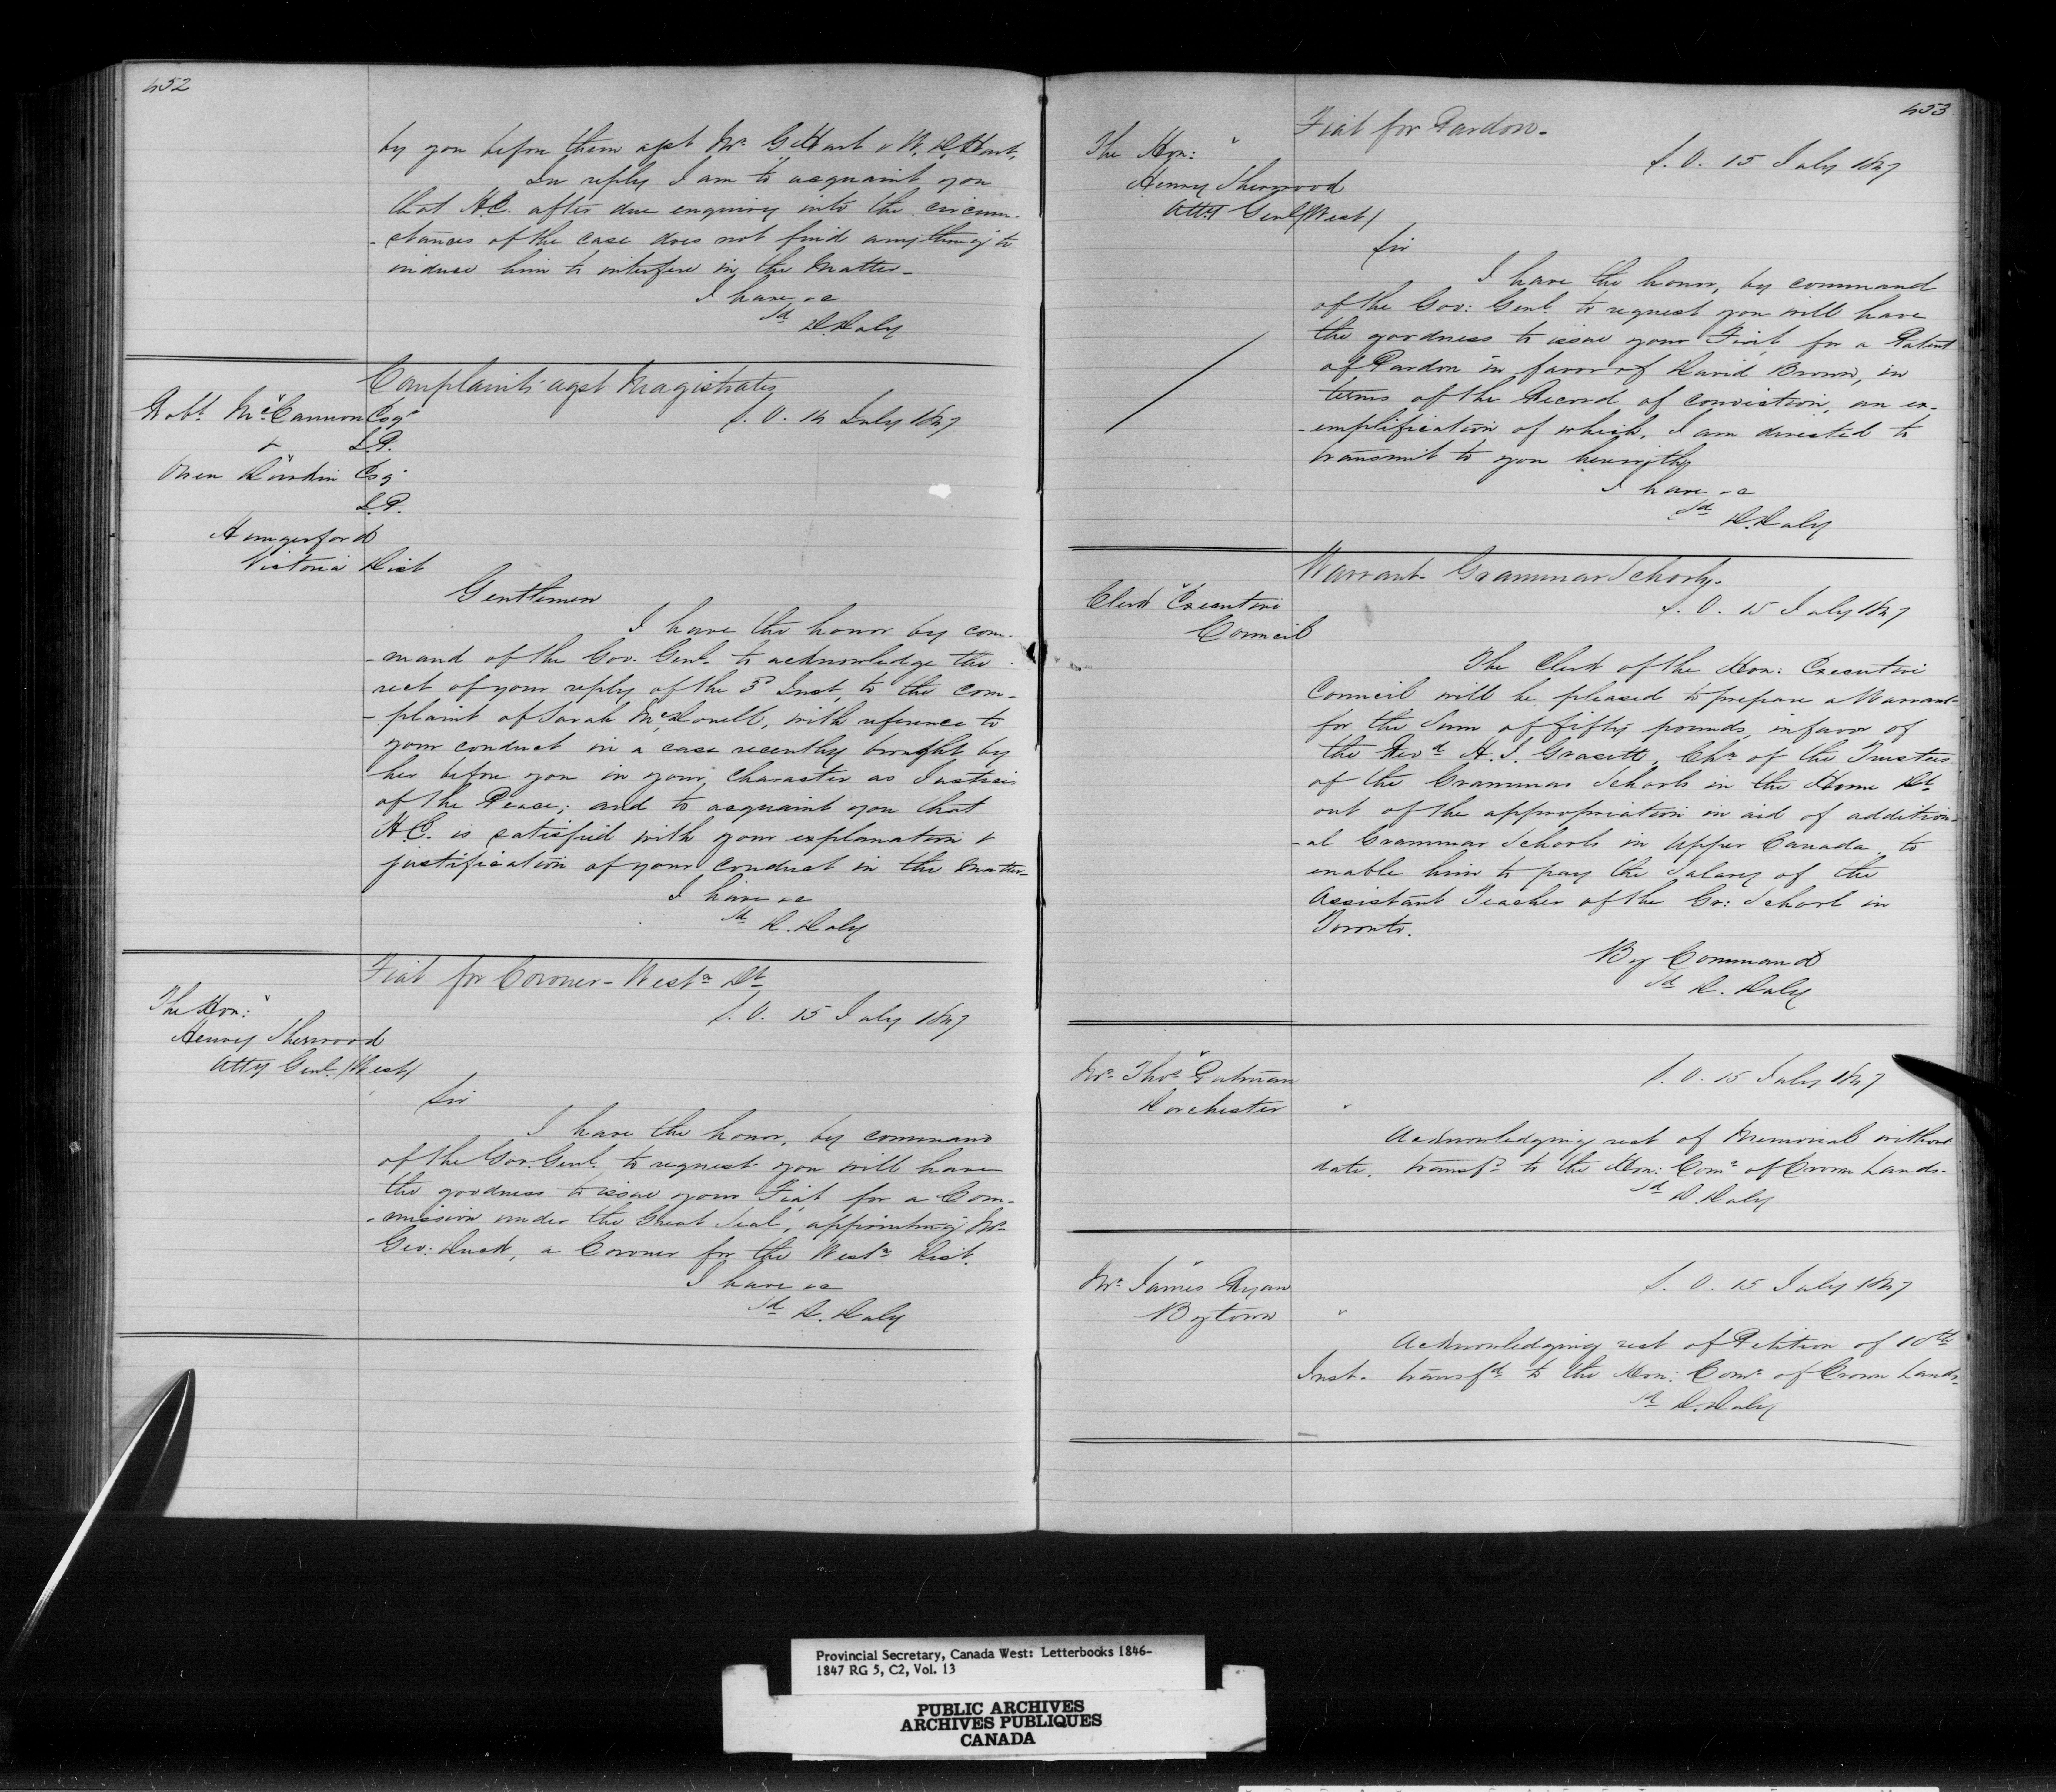 452
by you before them agst Mr. G. Hart & W. D. Hart,
In reply I am to acquaint you
that H.E. after due enquiry into the circum-
-stances of the case does not find anything to
induce him to interfere in the matter-
I have &c
sd D. Daly
Complaints agst Magistrates
Robt. McCannon Esqr
J.P.
&
Owen Esq
J.P.
Hungerford
Victoria Dist
S. O. 14 July 1847
Gentlemen
I have the honor by com-
-mand of the Gov. Genl. to acknowledge the
rect of your reply of the 3d Inst, to the com-
-plaint of Sarah McDonell, with reference to
your conduct in a case recently brought by
her before you in your character as Justices
of the Peace; and to acquaint you that
H.E. is satisfied with your explanation &
justification of your conduct in the matter-
I have &c
sd D. Daly
Fiat for Coroner- Westn Dt
The Hon:
Henry Sherwood
Atty Genl. (West)
S. O. 15 July 1847
Sir
I have the honor, by command
of the Gov. Genl. to request you will have
the goodness to issue your Fiat for a Com-
-mission under the Great Seal, appointing Mr
Geo: Duck, a Coroner for the Westn Dist.
I have &c
sd D. Daly
453
Fiat for Pardon-
The Hon:
Henry Sherwood
Atty Genl (West)
S. O. 15 July 1847
Sir
I have the honor, by command
of the Gov: Genl. to request you will have
the goodness to issue your Fiat, for a Patent
of Pardon in favor of David Brown, in
terms of the Record of conviction, an ex-
-emplification of which, I am directed to
transmit to you herewith,
I have &c
sd D. Daly
Warrant- Grammar Schools-
Clerk Executive
Council
S. O. 15 July 1847
The Clerk of the Hon: Executive
Council will be pleased to prepare a Warrant-
for the Sum of fifty pounds, in favor of
the Revd. H. J. Grasett, Chn of the Trustees
of the Grammar Schools in the Home Dt
out of the appropriation in aid of addition-
-al Grammar Schools in Upper Canada, to
enable him to pay the Salary of the
Assistant Teacher of the Gr: School in
Toronto.
By Command
sd D. Daly
Mr Thos. Putman
Dorchester
S. O. 15 July 1847
Acknowledging rect of Memorial without
date. transfd to the Hon: Comr of Crown Lands-
sd D. Daly
Mr. James Ryan
Bytown
S. O. 15 July 1847
Acknowledging rect of Petition of 10th
Inst. transfd to the Hon: Comr of Crown Lands-
sd D. Daly
Provincial Secretary, Canada West: Letterbooks 1846-
1847 RG 5, C2, Vol. 13
PUBLIC ARCHIVES
ARCHIVES PUBLIQUES
CANADA